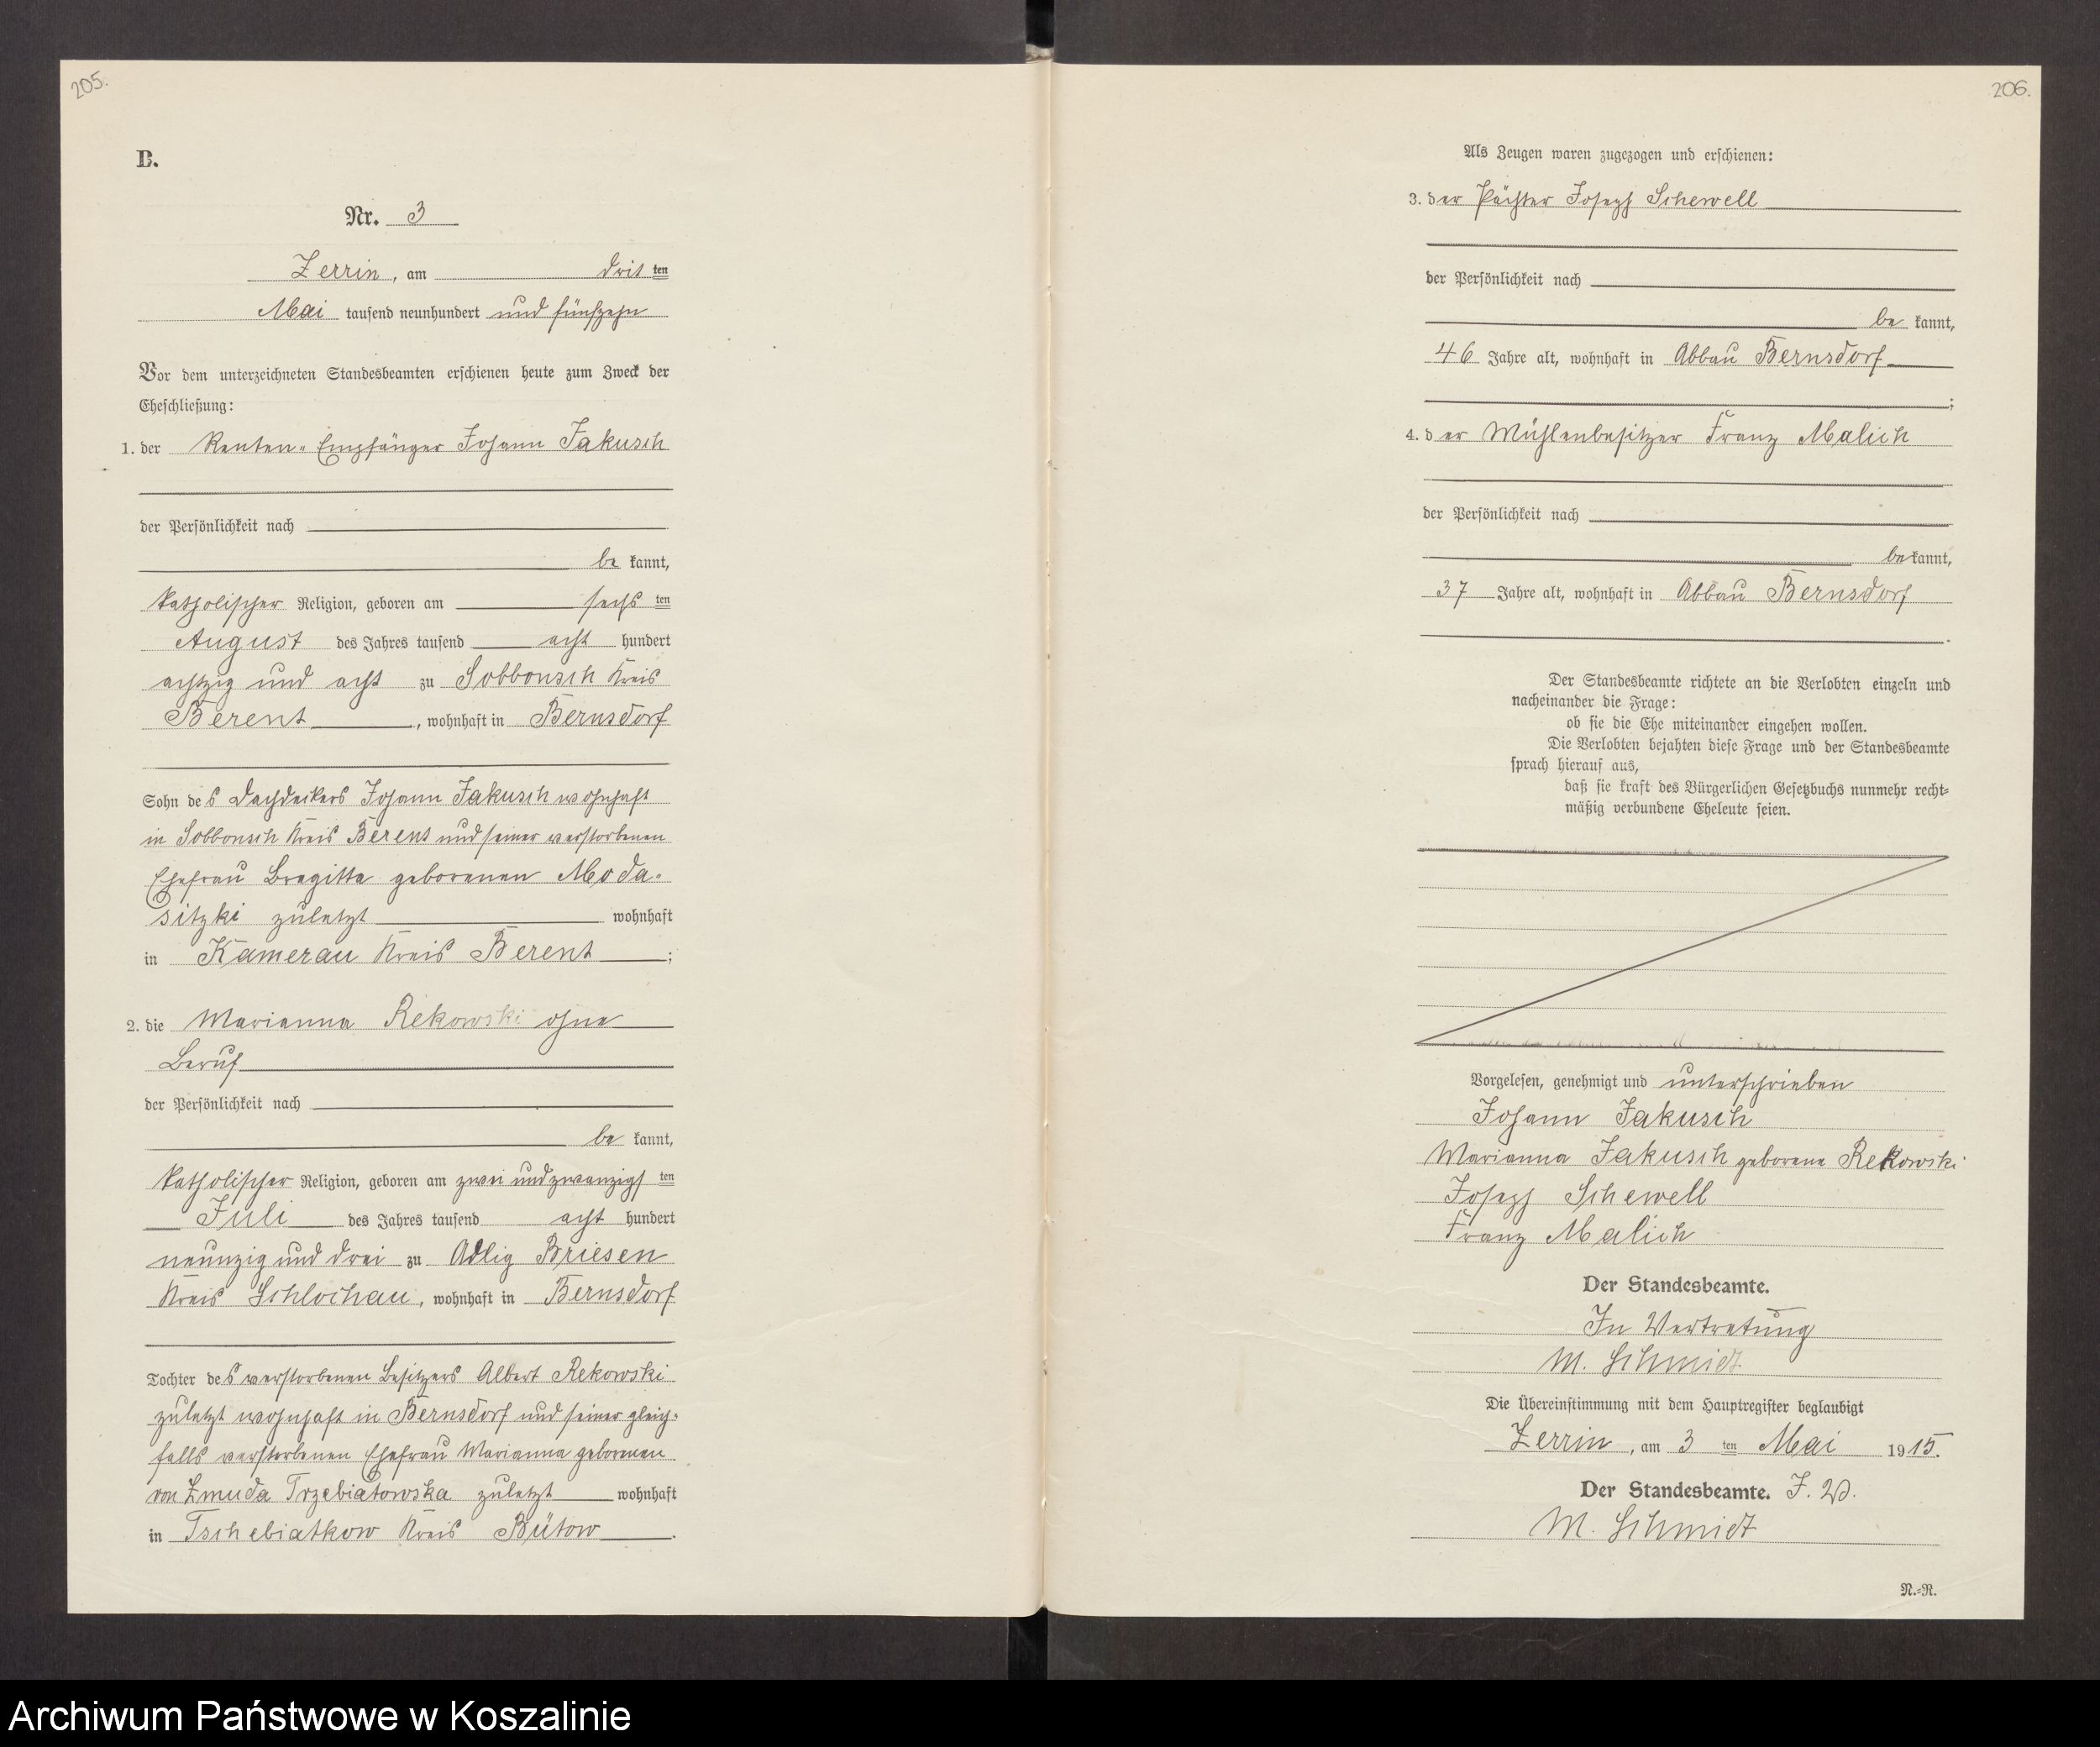 205.
B.
Nr. 3
Zerrin, am drit ten
Mai tausend neunhundert und fünfzehn
Vor dem unterzeichneten Standesbeamten erschienen heute zum Zweck der
Eheschließung:
1. der Renten-Empfänger Johann Jakusch
der Persönlichkeit nach
be kannt,
katholischer Religion, geboren am sechs ten
August des Jahres tausend acht hundert
achtzig und acht zu Sobbonsch Kreis
Berent, wohnhaft in Bernsdorf
Sohn des Dachdeckers Johann Jakusch wohnhaft
in Sobbonsch Kreis Berent und seiner verstorbenen
Ehefrau Bregitta geborenen Moda-
sitzki zuletzt wohnhaft
in Kamerau Kreis Berent;
2. die Marianna Rekowski ohne
Beruf
der Persönlichkeit nach
be kannt,
katholischer Religion, geboren am zwei und zwanzigs ten
Juli des Jahres tausend acht hundert
neunzig und drei zu Adlig Briesen
Kreis Schlochau, wohnhaft in Bernsdorf
Tochter des verstorbenen Besitzers Albert Rekowski
zuletzt wohnhaft in Bernsdorf und seiner gleich-
falls verstorbenen Ehefrau Marianna geborenen
von Zmuda Trzebiatowska zuletzt wohnhaft
in Tschebiatkow Kreis Bütow.
206.
Als Zeugen waren zugezogen und erschienen:
3. der Pächter Joseph Schewell
der Persönlichkeit nach
be kannt,
46 Jahre alt, wohnhaft in Abbau Bernsdorf
;
4. der Mühlenbesitzer Franz Malich
der Persönlichkeit nach
be kannt,
37 Jahre alt, wohnhaft in Abbau Bernsdorf
.
Der Standesbeamte richtete an die Verlobten einzeln und
nacheinander die Frage:
ob sie die Ehe miteinander eingehen wollen.
Die Verlobten bejahten diese Frage und der Standesbeamte
sprach hierauf aus,
daß sie kraft des Bürgerlichen Gesetzbuchs nunmehr recht-
mäßig verbundene Eheleute seien.
Vorgelesen, genehmigt und unterschrieben
Johann Jakusch
Marianna Jakusch geborene Rekowski
Joseph Schewell
Franz Malich
Der Standesbeamte.
In Vertretung
M. Schmidt
Die Übereinstimmung mit dem Hauptregister beglaubigt
Zerrin, am 3 ten Mai 1915.
Der Standesbeamte. J. V.
M. Schmidt
N.-R.
Archiwum Państwowe w Koszalinie